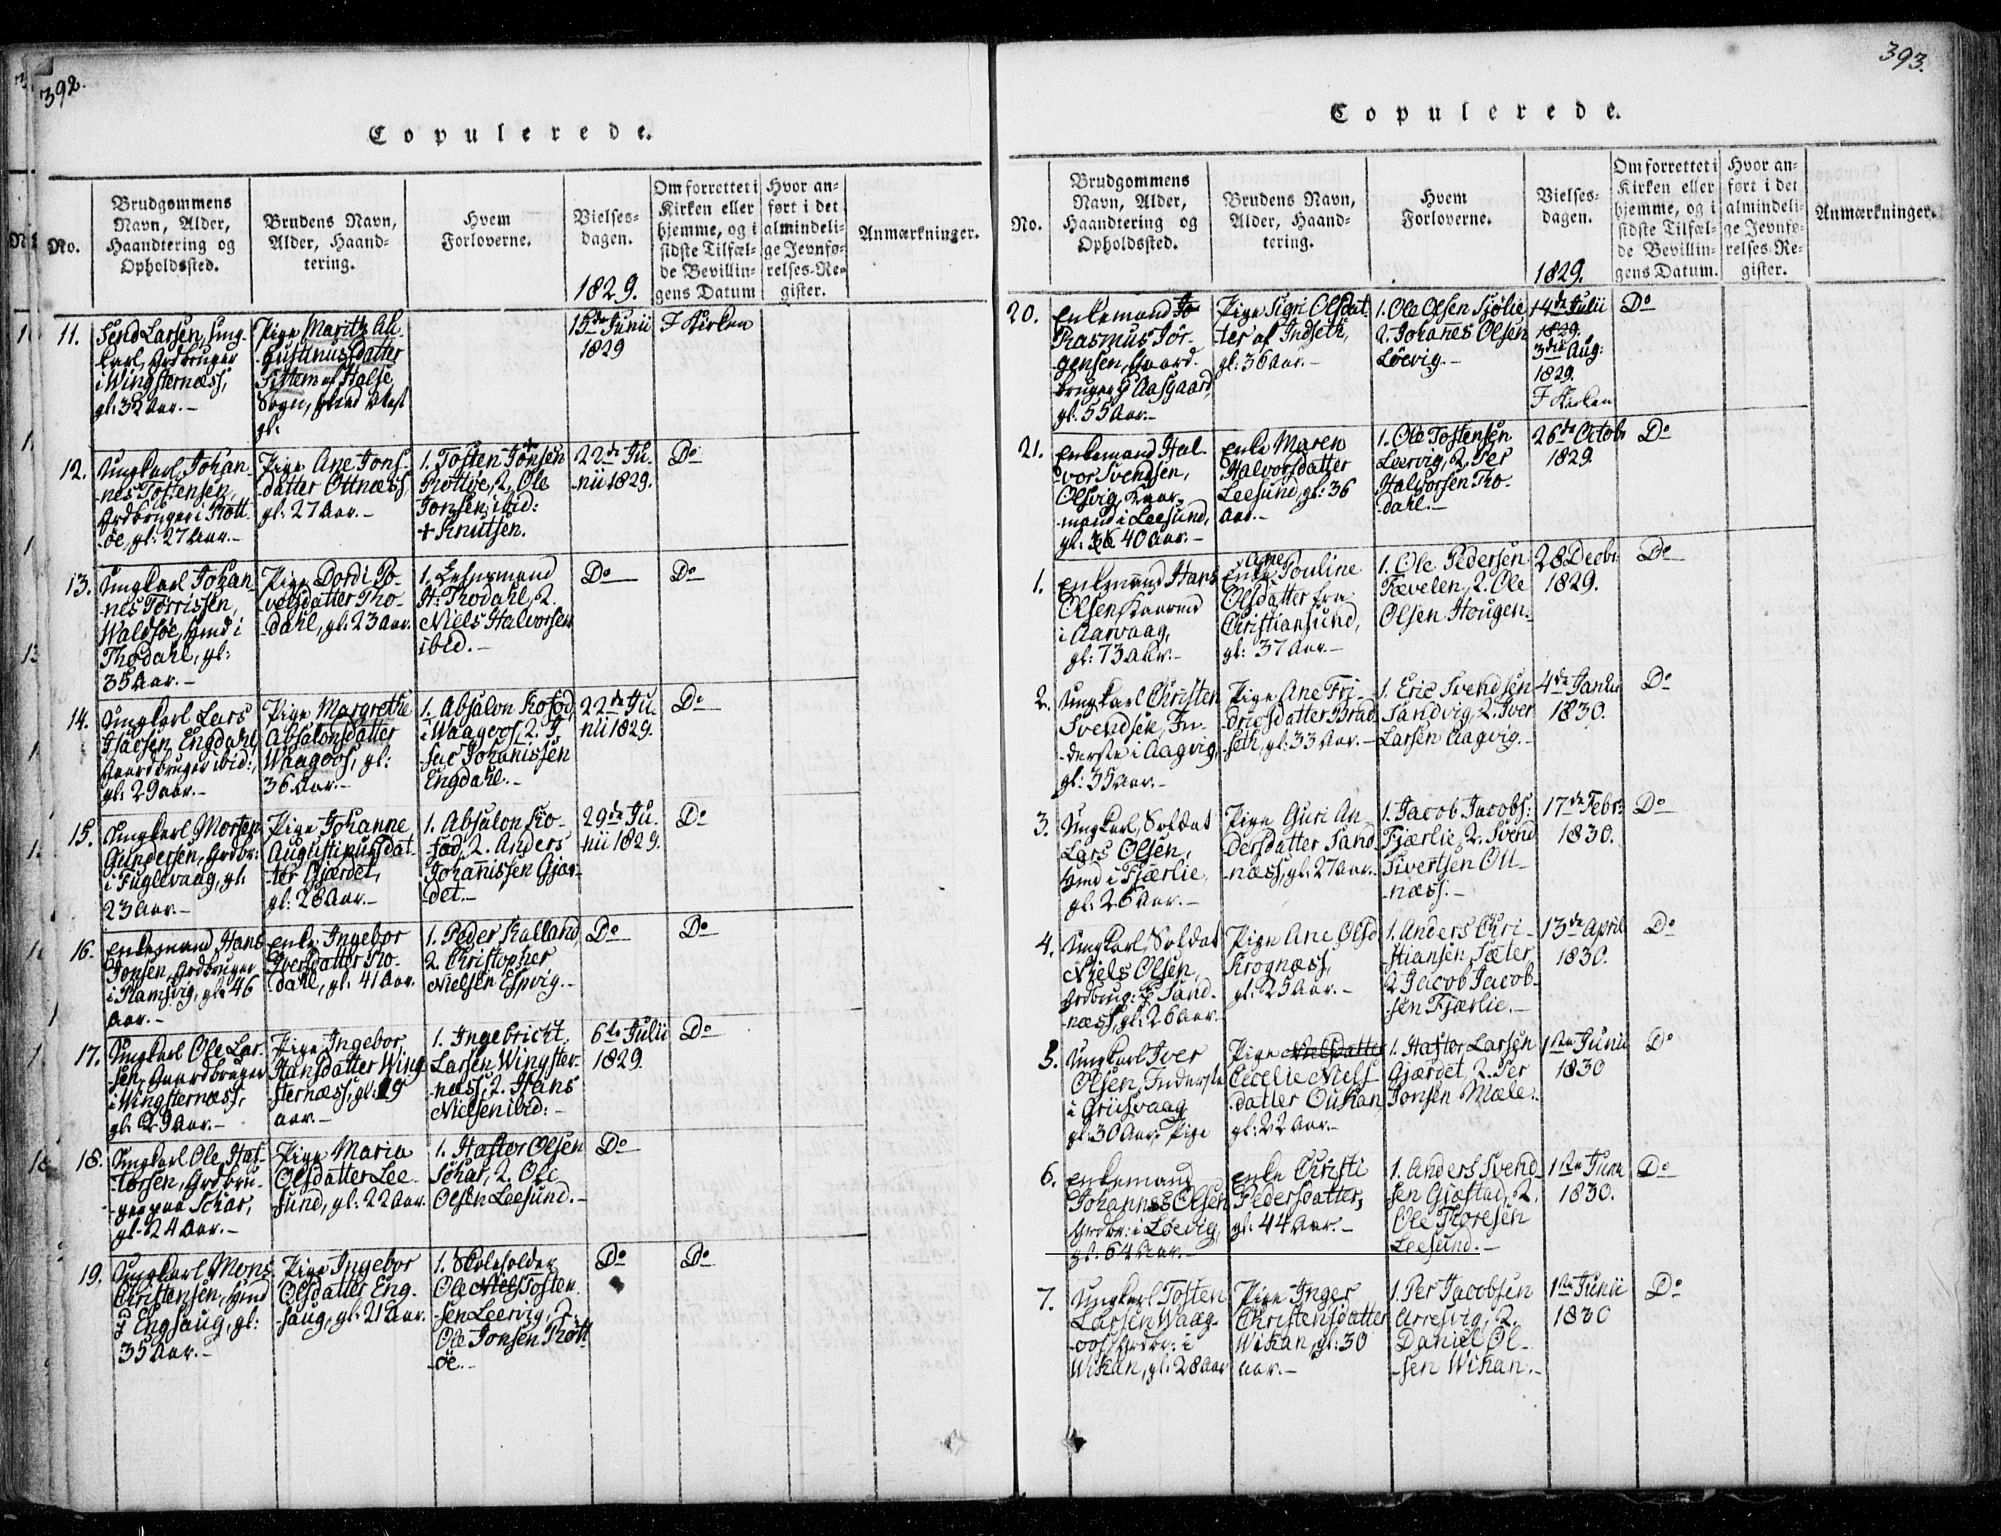 392.
Copulerede.
No.
Brudgommens
Navn, Alder,
Haandtering og
Opholdssted.
Brudens Navn,
Alder, Haand-
tering.
Hvem
Forloverne.
Vielses-
dagen.
1829.
Om forrettet i
Kirken eller
hjemme, og i
sidste Tilfæl-
de Bevillin-
gens Datum
Hvor an-
ført i det
almindeli-
ge Jevnfø-
relses-Re-
gister.
Anmærkninger.
11.
Send Larsen, Ung-
karl, Grdbruger
i Wingsternæss,
gl: 32 Aar.-
Pige Maritz Au-
gustinusdatter
af Halse
Sogn,
gl:
15de Junii
1829
I Kirken
12.
Ungkarl Johan-
nes Tostensen,
Grdbruger i Rott-
öe, gl: 27 Aar.-
Pige Ane Jons-
datter Ottnæss
gl: 27 Aar.-
1. Tosten + Jonsen
Rottöe, 2. Ole
Jonsen ibid:
+ Knutsen.
22de Ju-
nii 1829.
Do
13.
Ungkarl Johan-
nes Torrissen,
Waldsöe, Gmd i
Thodahl, gl:
35 Aar.-
Pige Dordi Po-
velsdatter Tho-
dahl, gl: 23 Aar.
1. Lehnsmand
H: Thodahl, 2.
Niels Halvorsen
ibid.-
Do
Do
14.
Ungkarl Lars
Isacsen Engdahl,
Gaardbruger ibid:,
gl: 29 Aar.-
Pige Margrethe
Absalonsdatter
Waagoos, gl:
36 Aar.-
1. Absalon Kofod
i Waagoos, 2. I-
sac Johanissen
Engdahl.-
22de Ju-
nii 1829.
Do
15.
Ungkarl Morten
Gundersen, Grdbr:
i Fuglevaag, gl:
23 Aar.-
Pige Johanne
Augustinusdat-
ter Gjærdet,
gl: 28 Aar.-
1. Absalon Ko-
fod, 2. Anders
Johannissen Gjær-
det.-
29de Ju-
nii 1829.
Do
16.
Enkemand Hans
Jonsen, Grdbruger
i Ramsvig, gl: 46
Aar.-
Enke Ingebor
Iversdatter Tho-
dahl, gl: 41 Aar.
1. Peder Kalland,
2. Christopher
Nielsen Espvig.-
Do
Do
17.
Ungkarl Ole Lar-
sen, Gaardbruger
i Wingsternæss,
gl: 29 Aar.-
Pige Ingebor
Hansdatter Wing-
sternæss, gl: 19
Aar.-
1. Ingebricht
Larsen Wingster-
næss, 2. Hans
Nielsen ibid:-
6te Julii
1829.
Do
18.
Ungkarl Ole Has-
torsen, Grdbru-
ger paa Schar,
gl: 24 Aar.-
Pige Maria
Olsdatter Lee-
sund, gl: 22 Aar.
1. Hastor Olsen
Schar, 2. Ole
Olsen Leesund.-
Do
19.
Ungkarl Mons
Christensen, Gmd
i Engsaug, gl:
35 Aar.-
Pige Ingebor
Olsdatter Eng-
saug, gl: 21 Aar.
1. Skoleholder
Ole Niels Tosten-
sen Leervig, 2.
Ole Jonsen Rott-
öe.-
Do
Do
393.
Copulerede.
No.
Brudgommens
Navn, Alder,
Haandtering og
Opholdssted.
Brudens Navn,
Alder, Haand-
tering.
Hvem
Forloverne.
Vielses-
dagen.
1829.
Om forrettet i
Kirken eller
hjemme, og i
sidste Tilfæl-
de Bevillin-
gens Datum.
Hvor an-
ført i det
almindeli-
ge Jevnfø-
relses-Re-
gister.
Anmærkninger.
20.
Enkemand Jo
Rasmus Jör-
gensen, Gaard-
bruger i Aasgaard,
gl: 55 Aar.-
Pige Sigri Olsdat-
ter af Indseth,
gl: 36 Aar.-
1. Ole Olsen Sjölie
2. Johannes Olsen
Löevig.-
14de Julii
1829.
3die Aug:
1829.
I Kirken
Do
21.
Enkemand Hal-
vor Svendsen,
Olsvig, Gaar-
mand i Leesund,
gl: 36 40 Aar.-
Enke Maren
Halvorsdatter
Leesund, gl: 36
Aar.-
1. Ole Tostensen
Leervig, 2. Per
Halvorsen Tho-
dahl.-
26de Octobr
1829.
Do
1.
Enkemand Hans
Olsen
i Aarvaag,
gl: 73 Aar.-
Ane
Enke Pouline
Olsdatter fra
Christiansund,
gl: 37 Aar.-
1. Ole Pedersen
Tævelen, 2. Ole
Olsen Hougen.
28 Decbr
1829.
Do
2.
Ungkarl Christen
Svendsen, In-
derste i Aagvig,
gl: 35 Aar.-
Pige Ane Fri-
dricsdatter Brad-
seth, gl: 33 Aar.-
1. Eric Svendsen
Sandvig, 2. Iver
Larsen Aagvig.-
4de Januar
1830.
Do
3.
Ungkarl, Soldat
Lars Olsen,
Gmd i Fjærlie,
gl: 26 Aar.-
Pige Guri An-
dersdatter Sand-
næss, gl: 27 Aar.-
1. Jacob Jacobs:
Fjærlie, 2. Svend
Sivertsen Ott-
næss.-
17de Febr:
1830.
Do
4.
Ungkarl, Soldat
Niels Olsen,
Grdbrug: i Sand-
næss, gl: 26 Aar.
Pige Ane Olsd
Krognæss,
gl: 25 Aar.-
1. Anders Chri-
stiansen Sæter
2 Jacob Jacob-
sen Fjærlie.-
13de April
1830.
Do
5.
Ungkarl Iver
Olsen, Inderste
i Griisvaag
gl: 30 Aar. Pige
Pige Nielsdatter
Cecelie Niels-
datter Oukan
gl: 22 Aar.-
1. Hastor Larsen
Gjærdet, 2. Per
Jonsen Mæle.
1ste Junii
1830
Do
6.
Enkemand
Johannes Olsen
Grdbr: i Löevig,
gl: 64 Aar.-
Enke Christi
Pedersdatter,
gl: 44 Aar.-
1. Anders Svend-
sen Gjöstad, 2.
Ole Thoresen
Leesund.-
1ste Junii
1830.
Do
7.
Ungkarl Tosten
Larsen Waag-
oos, Grdbr: i
Wikan, gl: 28 Aar
Pige Inger
Christensdatter
Wikan, gl: 30
Aar.-
1. Per Jacobsen
Arresvig, 2.
Daniel Ol-
sen Wikan.-
1ste Junii
1830
Do